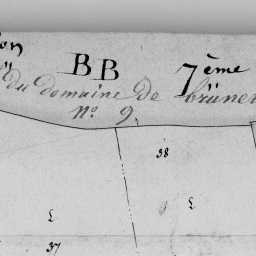 on BB 7ème
du domaine de brünen
No. 9.
38
L
L
37